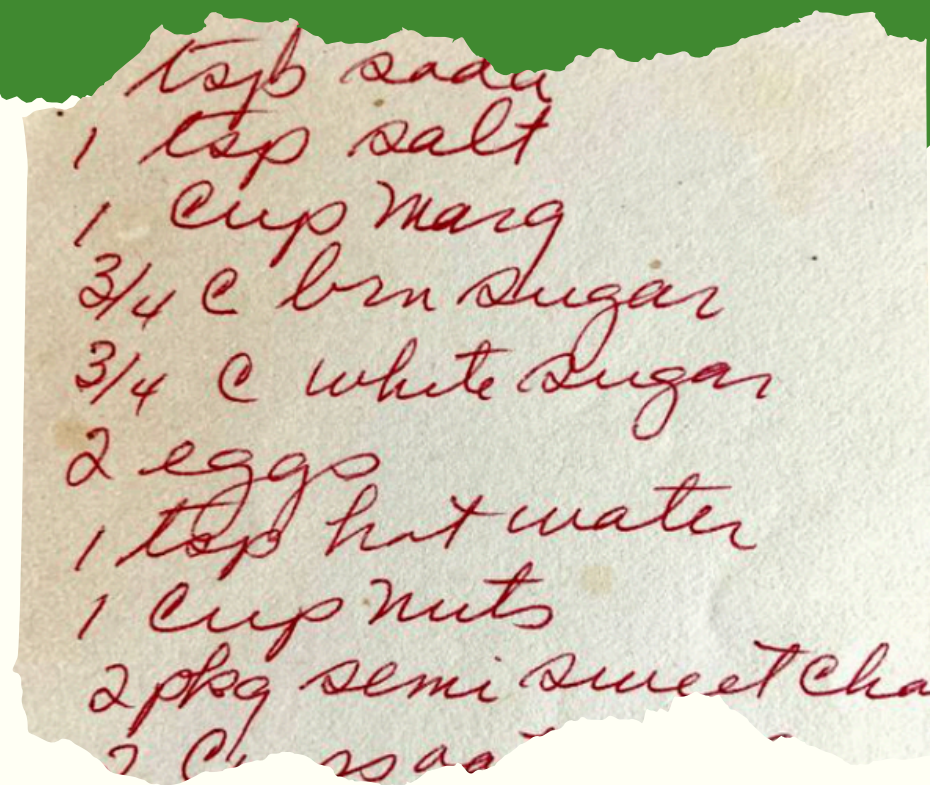 tsp soda
1 tsp salt
1 cup marg
3/4 c brn sugar
3/4 c white sugar
2 eggs
1 tsp hot water
1 cup nuts
2 pkg semi sweet cho
2